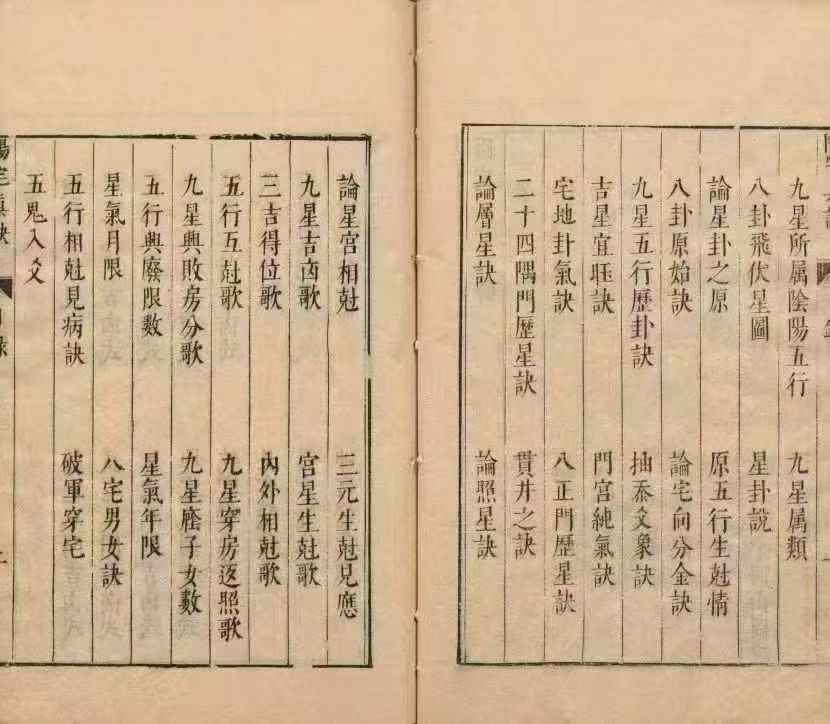 九星所属陰陽五行 九星属類
八卦飛伏星圖 星卦說
論星卦之原 原五行生尅情
八卦原始訣 論宅向分金訣
九星五行歷卦訣 抽泰爻象訣
吉星宜旺訣 門宮純氣訣
宅地卦氣訣 八正門歷星訣
二十四隅門歷星訣 貫井之訣
論層星訣 論照星訣
論星宮相尅 三元生尅見應
九星吉凶歌 宮星生尅歌
三吉得位歌 內外相尅歌
五行互尅歌 九星穿房返照歌
九星興敗房分歌 九星廕子女數
五行興廢限數 星氣年限
星氣月限 八宅男女訣
五行相尅見病訣 破軍穿宅
五鬼入爻
陽宅真訣